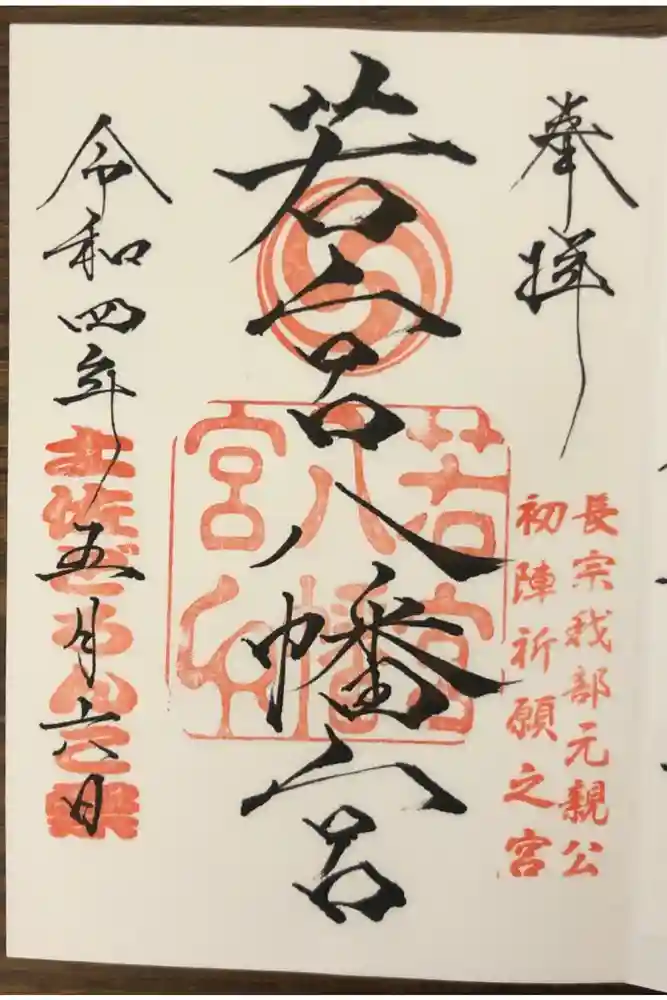 奉拝
長宗我部元親公
初陣祈願之宮
若宮八幡宮
若宮
八幡
宮印
令和四年五月六日
土佐どろんこ祭